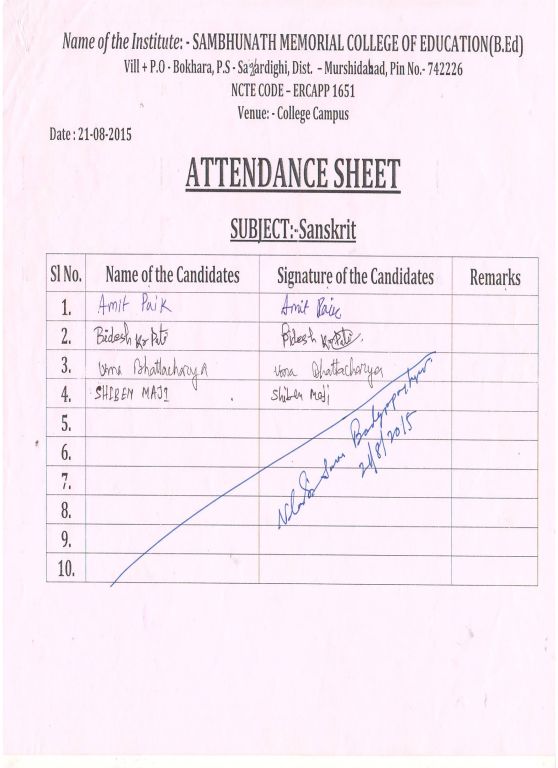 Name of the Institute: - SAMBHUNATH MEMORIAL COLLEGE OF EDUCATION(B.Ed)
Vill + P.O - Bokhara, P.S - Sagardighi, Dist. - Murshidabad, Pin No.- 742226
NCTE CODE – ERCAPP 1651
Venue: - College Campus
Date : 21-08-2015
ATTENDANCE SHEET
SUBJECT:-Sanskrit
Sl No. Name of the Candidates Signature of the Candidates Remarks
1. Amit Paik Amit Paik
2. Bidesh Kr Pati Bidesh Kr Pati
3. Uma Bhattacharya Uma Bhattacharya
4. SHIBEN MAJI Shiben Maji
5.
6.
7.
8.
9.
10.
21/8/2015